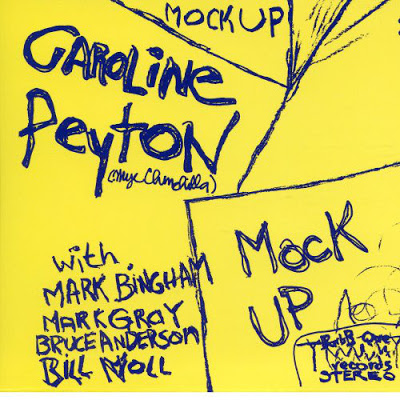 MOCKUP
CAROLiNE
PeyToN
with.
MARK BINGHAM
MARK GRAY
BRUCE ANDERSON
BiLL NOLL
MocK
UP
records
STEREO